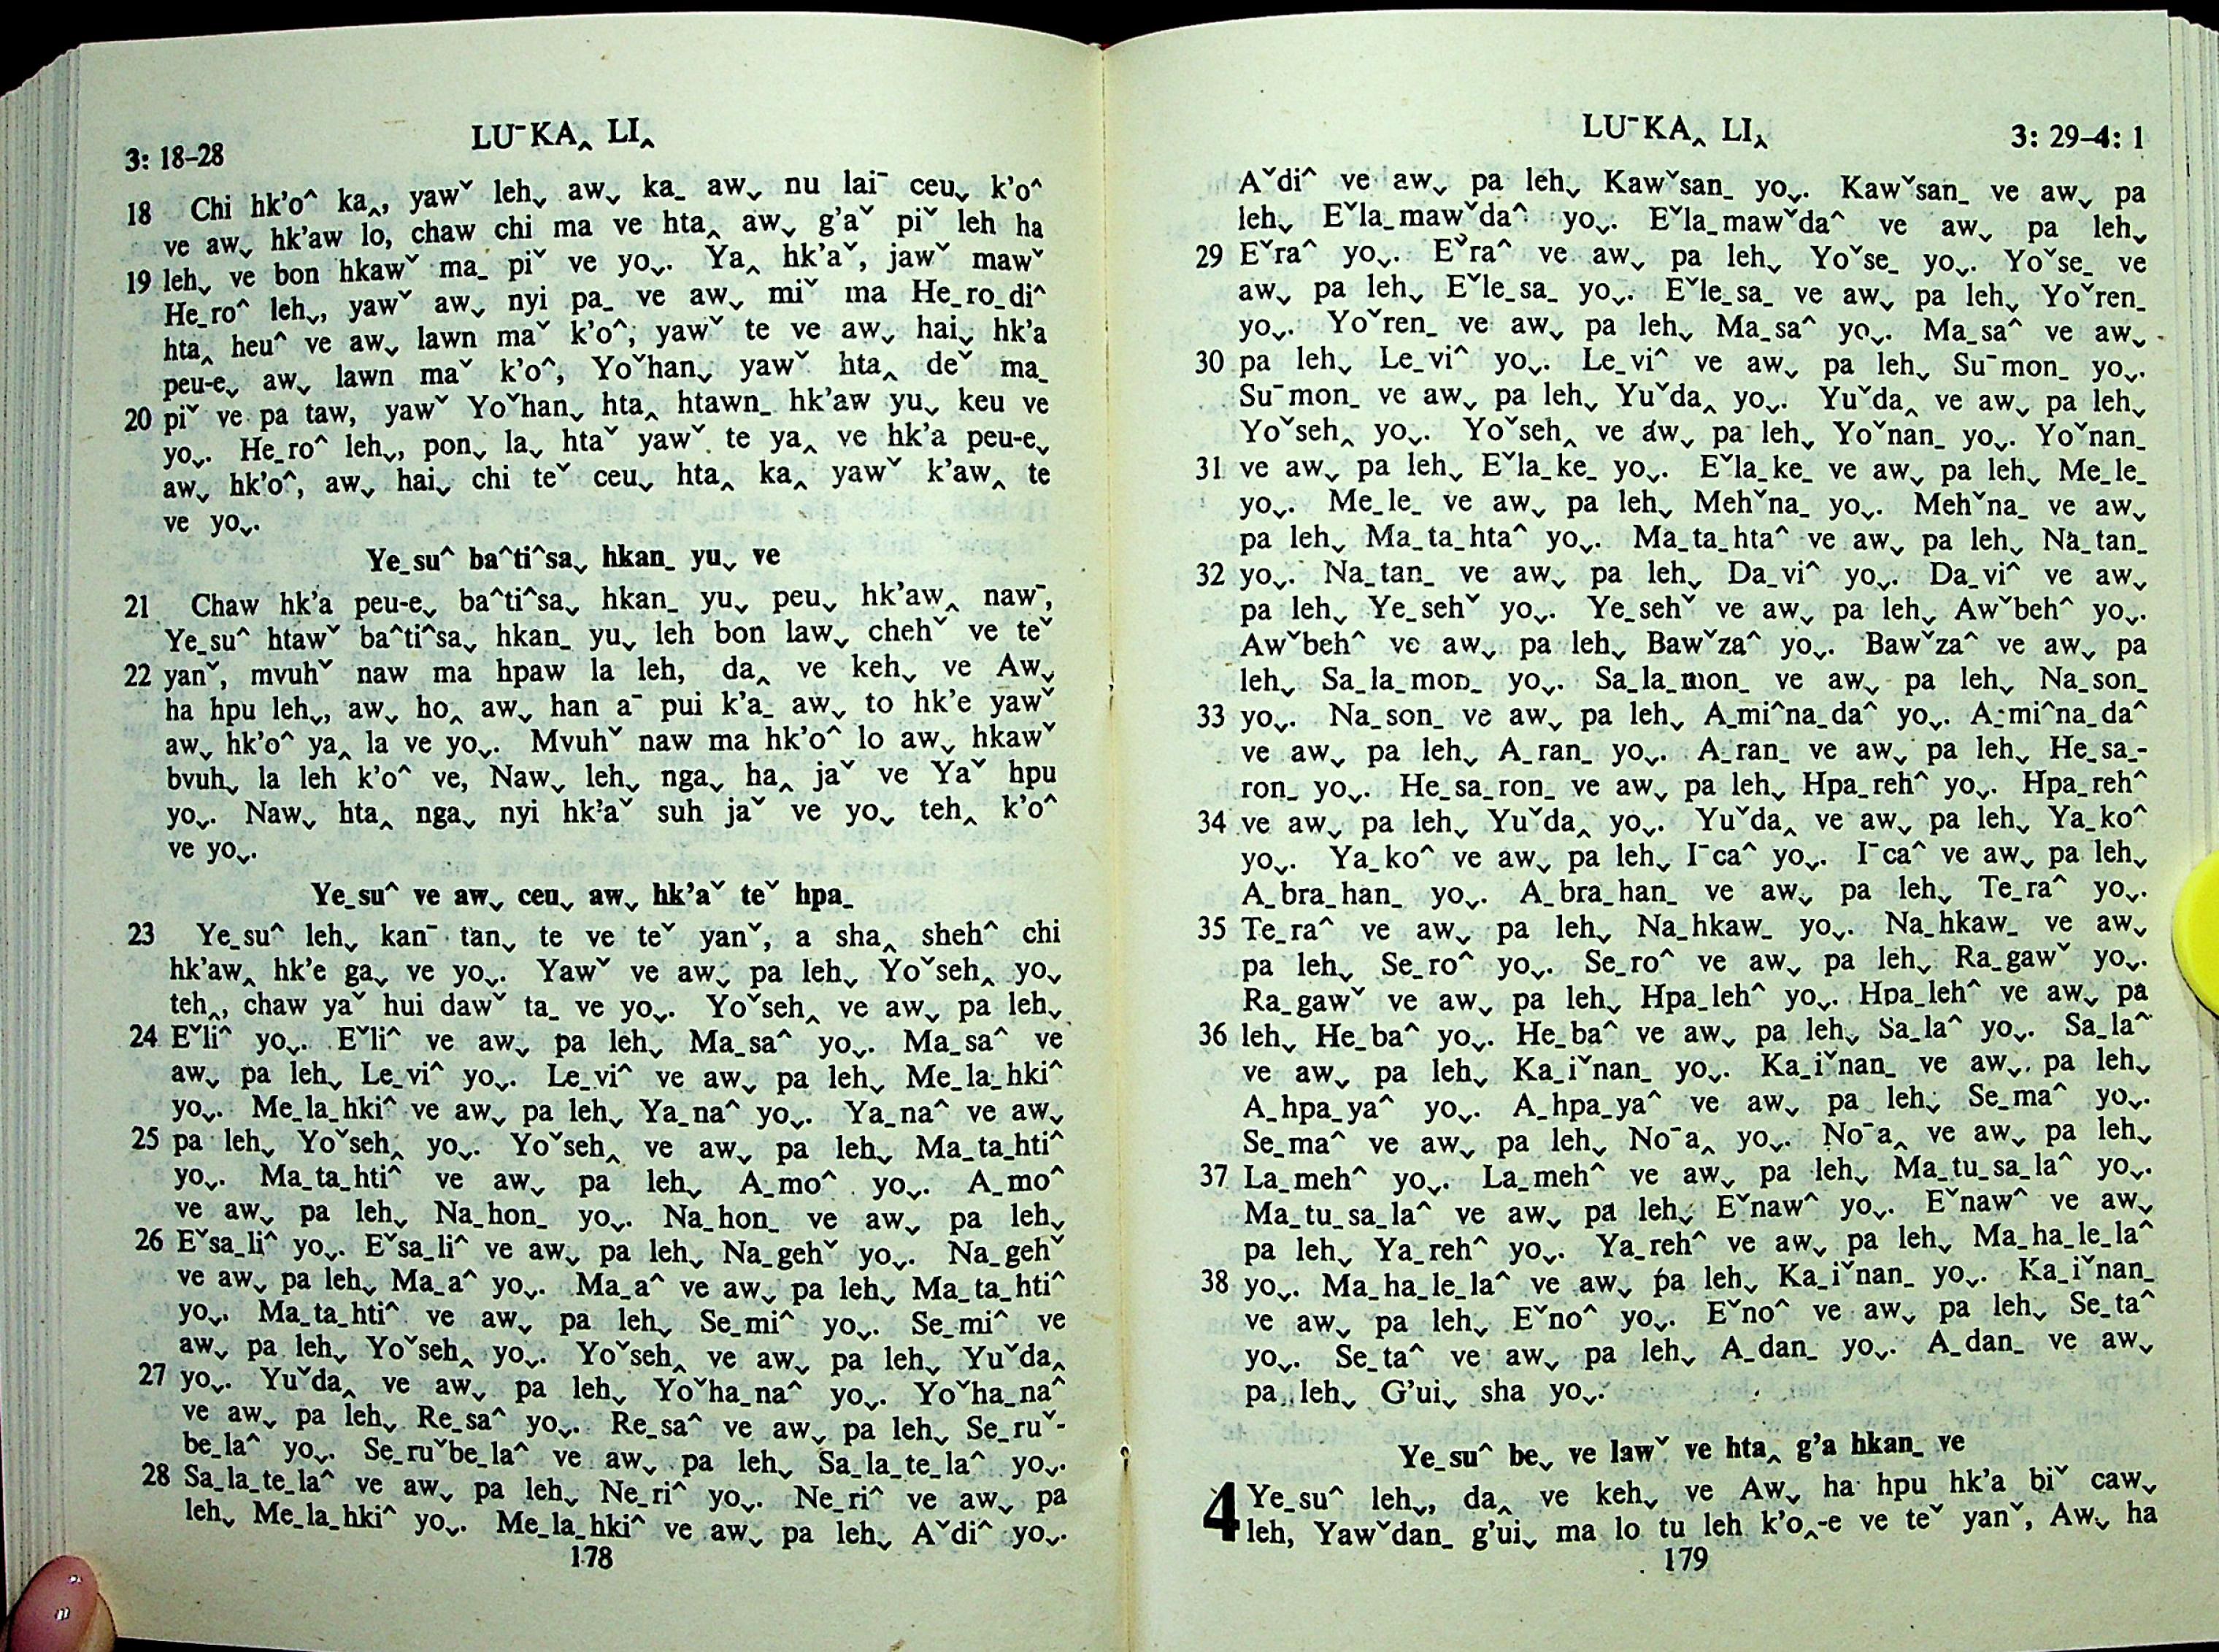 3: 18–28
LU¯KA˰ LI˰
18 Chi hk’oˆ ka˰, yawˇ leh˯ aw˯ ka_ aw˯ nu lai¯ ceu˯ k’oˆ
ve aw˯ hk’aw lo, chaw chi ma ve hta˰ aw˯ g’aˇ piˇ leh ha
19 leh˯ ve bon hkawˇ ma_ piˇ ve yo˯. Ya˰ hk’aˇ, jawˇ mawˇ
He_roˆ leh˯, yawˇ aw˯ nyi pa_ ve aw˯ miˇ ma He_ro_diˆ
hta˰ heuˆ ve aw˯ lawn maˇ k’oˆ; yawˇ te ve aw˯ hai˯ hk’a
peu-e˯ aw˯ lawn maˇ k’oˆ, Yoˇhan˯ yawˇ hta˰ deˇ ma_
20 piˇ ve pa taw, yawˇ Yoˇhan˯ hta˰ htawn_ hk’aw yu˯ keu ve
yo˯. He_roˆ leh˯, pon˯ la˯ htaˇ yawˇ te ya˰ ve hk’a peu-e˯
aw˯ hk’oˆ, aw˯ hai˯ chi teˇ ceu˯ hta˰ ka˰ yawˇ k’aw˰ te
ve yo˯.
Ye_suˆ baˆtiˆsa˯ hkan_ yu˯ ve
21 Chaw hk’a peu-e˯ baˆtiˆsa˯ hkan_ yu˯ peu˯ hk’aw˰ naw¯,
Ye_suˆ htawˇ baˆtiˆsa˯ hkan_ yu˯ leh bon law˯ chehˇ ve teˇ
22 yanˇ, mvuhˇ naw ma hpaw la leh, da˰ ve keh˯ ve Aw˯
ha hpu leh˯, aw˯ ho˰ aw˯ han a¯ pui k’a_ aw˯ to hk’e yawˇ
aw˯ hk’oˆ ya˰ la ve yo˯. Mvuhˇ naw ma hk’oˆ lo aw˯ hkawˇ
bvuh˯ la leh k’oˆ ve, Naw˯ leh˯ nga˯ ha˰ jaˇ ve Yaˇ hpu
yo˯. Naw˯ hta˰ nga˯ nyi hk’aˇ suh jaˇ ve yo˯ teh˰ k’oˆ
ve yo˯.
Ye_suˆ ve aw˯ ceu˯ aw˯ hk’aˇ teˇ hpa_
23 Ye_suˆ leh˯ kan¯ tan˯ te ve teˇ yanˇ, a sha˰ shehˆ chi
hk’aw˰ hk’e ga˯ ve yo˯. Yawˇ ve aw˯ pa leh˯ Yoˇseh˰ yo˯
teh˰, chaw yaˇ hui dawˇ ta_ ve yo˯. Yoˇseh˰ ve aw˯ pa leh˯
24 Eˇliˆ yo˯. Eˇliˆ ve aw˯ pa leh˯ Ma_saˆ yo˯. Ma_saˆ ve
aw˯ pa leh˯ Le_viˆ yo˯. Le_viˆ ve aw˯ pa leh˯ Me_la_hkiˆ
yo˯. Me_la_hkiˆ ve aw˯ pa leh˯ Ya_naˆ yo˯. Ya_naˆ ve aw˯
25 pa leh˯ Yoˇseh˰ yo˯. Yoˇseh˰ ve aw˯ pa leh˯ Ma_ta_htiˆ
yo˯. Ma_ta_htiˆ ve aw˯ pa leh˯ A_moˆ yo˯. A_moˆ
ve aw˯ pa leh˯ Na_hon_ yo˯. Na_hon_ ve aw˯ pa leh˯
26 Eˇsa_liˆ yo˯. Eˇsa_liˆ ve aw˯ pa leh˯ Na_gehˇ yo˯. Na_gehˇ
ve aw˯ pa leh˯ Ma_aˆ yo˯. Ma_aˆ ve aw˯ pa leh˯ Ma_ta_htiˆ
yo˯. Ma_ta_htiˆ ve aw˯ pa leh˯ Se_miˆ yo˯. Se_miˆ ve
aw˯ pa leh˯ Yoˇseh˰ yo˯. Yoˇseh˰ ve aw˯ pa leh˯ Yuˇda˰
27 yo˯. Yuˇda˰ ve aw˯ pa leh˯ Yoˇha_naˆ yo˯. Yoˇha_naˆ
ve aw˯ pa leh˯ Re_saˆ yo˯. Re_saˆ ve aw˯ pa leh˯ Se_ruˇ-
be_laˆ yo˯. Se_ruˇbe_laˆ ve aw˯ pa leh˯ Sa_la_te_laˆ yo˯.
28 Sa_la_te_laˆ ve aw˯ pa leh˯ Ne_riˆ yo˯. Ne_riˆ ve aw˯ pa
leh˯ Me_la_hkiˆ yo˯. Me_la_hkiˆ ve aw˯ pa leh˯ Aˇdiˆ yo˯.
178
LU¯KA˰ LI˰
3: 29–4: 1
Aˇdiˆ ve aw˯ pa leh˯ Kawˇsan_ yo˯. Kawˇsan_ ve aw˯ pa
leh˯ Eˇla_mawˇdaˆ yo˯. Eˇla_mawˇdaˆ ve aw˯ pa leh˯
29 Eˇraˆ yo˯. Eˇraˆ ve aw˯ pa leh˯ Yoˇse_ yo˯. Yoˇse_ ve
aw˯ pa leh˯ Eˇle_sa_ yo˯. Eˇle_sa_ ve aw˯ pa leh˯ Yoˇren_
yo˯. Yoˇren_ ve aw˯ pa leh˯ Ma_saˆ yo˯. Ma_saˆ ve aw˯
30 pa leh˯ Le_viˆ yo˯. Le_viˆ ve aw˯ pa leh˯ Su¯mon_ yo˯.
Su¯mon_ ve aw˯ pa leh˯ Yuˇda˰ yo˯. Yuˇda˰ ve aw˯ pa leh˯
Yoˇseh˰ yo˯. Yoˇseh˰ ve aw˯ pa leh˯ Yoˇnan_ yo˯. Yoˇnan_
31 ve aw˯ pa leh˯ Eˇla_ke_ yo˯. Eˇla_ke_ ve aw˯ pa leh˯ Me_le_
yo˯. Me_le_ ve aw˯ pa leh˯ Mehˇna_ yo˯. Mehˇna_ ve aw˯
pa leh˯ Ma_ta_htaˆ yo˯. Ma_ta_htaˆ ve aw˯ pa leh˯ Na_tan_
32 yo˯. Na_tan_ ve aw˯ pa leh˯ Da_viˆ yo˯. Da_viˆ ve aw˯
pa leh˯ Ye_sehˇ yo˯. Ye_sehˇ ve aw˯ pa leh˯ Awˇbehˆ yo˯.
Awˇbehˆ ve aw˯ pa leh˯ Bawˇzaˆ yo˯. Bawˇzaˆ ve aw˯ pa
leh˯ Sa_la_mon_ yo˯. Sa_la_mon_ ve aw˯ pa leh˯ Na_son_
33 yo˯. Na_son_ ve aw˯ pa leh˯ A_miˆna_daˆ yo˯. A_miˆna_daˆ
ve aw˯ pa leh˯ A_ran_ yo˯. A_ran_ ve aw˯ pa leh˯ He_sa_-
ron_ yo˯. He_sa_ron_ ve aw˯ pa leh˯ Hpa_rehˆ yo˯. Hpa_rehˆ
34 ve aw˯ pa leh˯ Yuˇda˰ yo˯. Yuˇda˰ ve aw˯ pa leh˯ Ya_koˆ
yo˯. Ya_koˆ ve aw˯ pa leh˯ I¯caˆ yo˯. I¯caˆ ve aw˯ pa leh˯
A_bra_han_ yo˯. A_bra_han_ ve aw˯ pa leh˯ Te_raˆ yo˯.
35 Te_raˆ ve aw˯ pa leh˯ Na_hkaw_ yo˯. Na_hkaw_ ve aw˯
pa leh˯ Se_roˆ yo˯. Se_roˆ ve aw˯ pa leh˯ Ra_gawˇ yo˯.
Ra_gawˇ ve aw˯ pa leh˯ Hpa_lehˆ yo˯. Hpa_lehˆ ve aw˯ pa
36 leh˯ He_baˆ yo˯. He_baˆ ve aw˯ pa leh˯ Sa_laˆ yo˯. Sa_laˆ
ve aw˯ pa leh˯ Ka_iˇnan_ yo˯. Ka_iˇnan_ ve aw˯ pa leh˯
A_hpa_yaˆ yo˯. A_hpa_yaˆ ve aw˯ pa leh˯ Se_maˆ yo˯.
Se_maˆ ve aw˯ pa leh˯ No¯a˰ yo˯. No¯a˰ ve aw˯ pa leh˯
37 La_mehˆ yo˯. La_mehˆ ve aw˯ pa leh˯ Ma_tu_sa_laˆ yo˯.
Ma_tu_sa_laˆ ve aw˯ pa leh˯ Eˇnawˆ yo˯. Eˇnawˆ ve aw˯
pa leh˯ Ya_rehˆ yo˯. Ya_rehˆ ve aw˯ pa leh˯ Ma_ha_le_laˆ
38 yo˯. Ma_ha_le_laˆ ve aw˯ pa leh˯ Ka_iˇnan_ yo˯. Ka_iˇnan_
ve aw˯ pa leh˯ Eˇnoˆ yo˯. Eˇnoˆ ve aw˯ pa leh˯ Se_taˆ
yo˯. Se_taˆ ve aw˯ pa leh˯ A_dan_ yo˯. A_dan_ ve aw˯
pa leh˯ G’ui˯ sha yo˯.
Ye_suˆ be˯ ve lawˇ ve hta˰ g’a hkan_ ve
4 Ye_suˆ leh˯, da˰ ve keh˯ ve Aw˯ ha hpu hk’a biˇ caw˯
leh, Yawˇdan_ g’ui˯ ma lo tu leh k’o˰-e ve teˇ yanˇ, Aw˯ ha
179